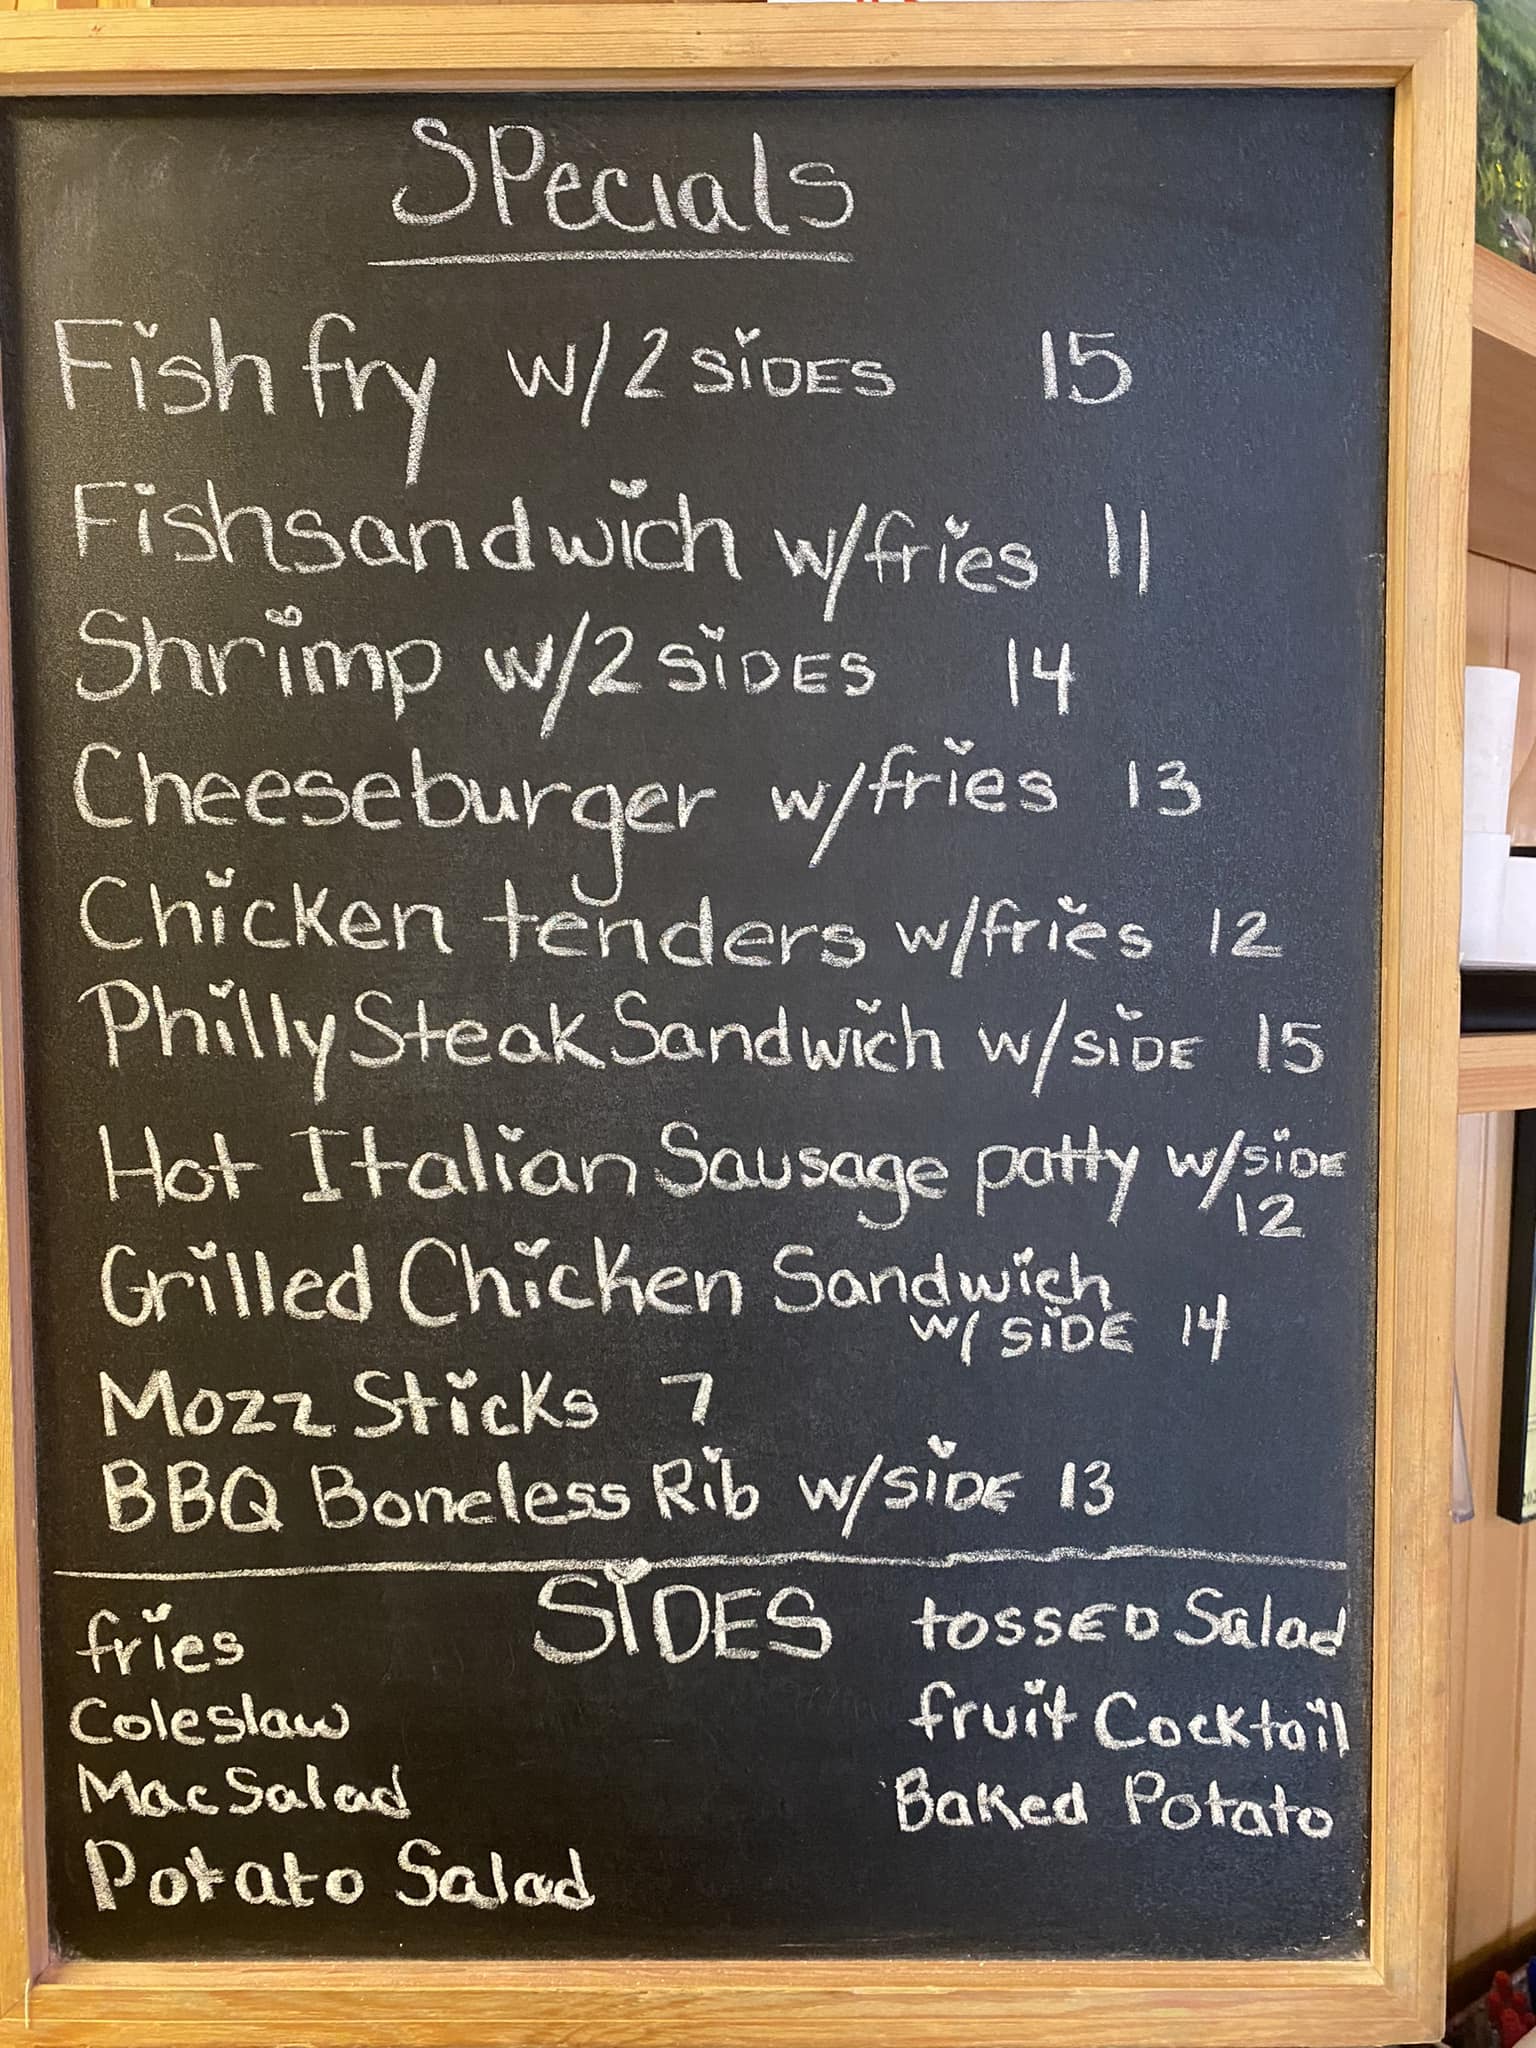 Specials
Fish fry w/2 SiDES 15
Fishsandwich w/fries 11
Shrimp w/2 SiDES 14
Cheeseburger w/fries 13
Chicken tenders w/fries 12
Philly Steak Sandwich w/SiDE 15
Hot Italian Sausage patty w/SiDE
12
Grilled Chicken Sandwich
w/ SiDE 14
Mozz Sticks 7
BBQ Boneless Rib w/SiDE 13
SiDES
fries
Coleslaw
Mac Salad
Potato Salad
tossED Salad
fruit Cocktail
Baked Potato